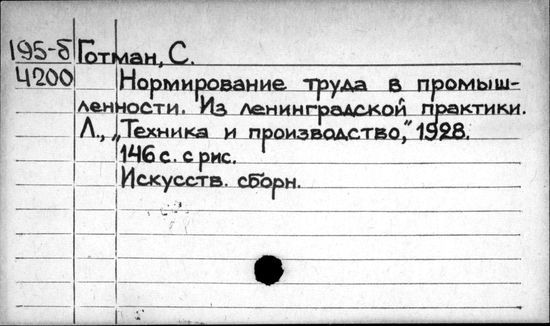 195-б Готман, С.
4200 Нормирование труда в промыш-
ленности. Из ленинградской практики.
Л., „Техника и производство," 1928.
146 с. с рис.
Искусств. сборн.